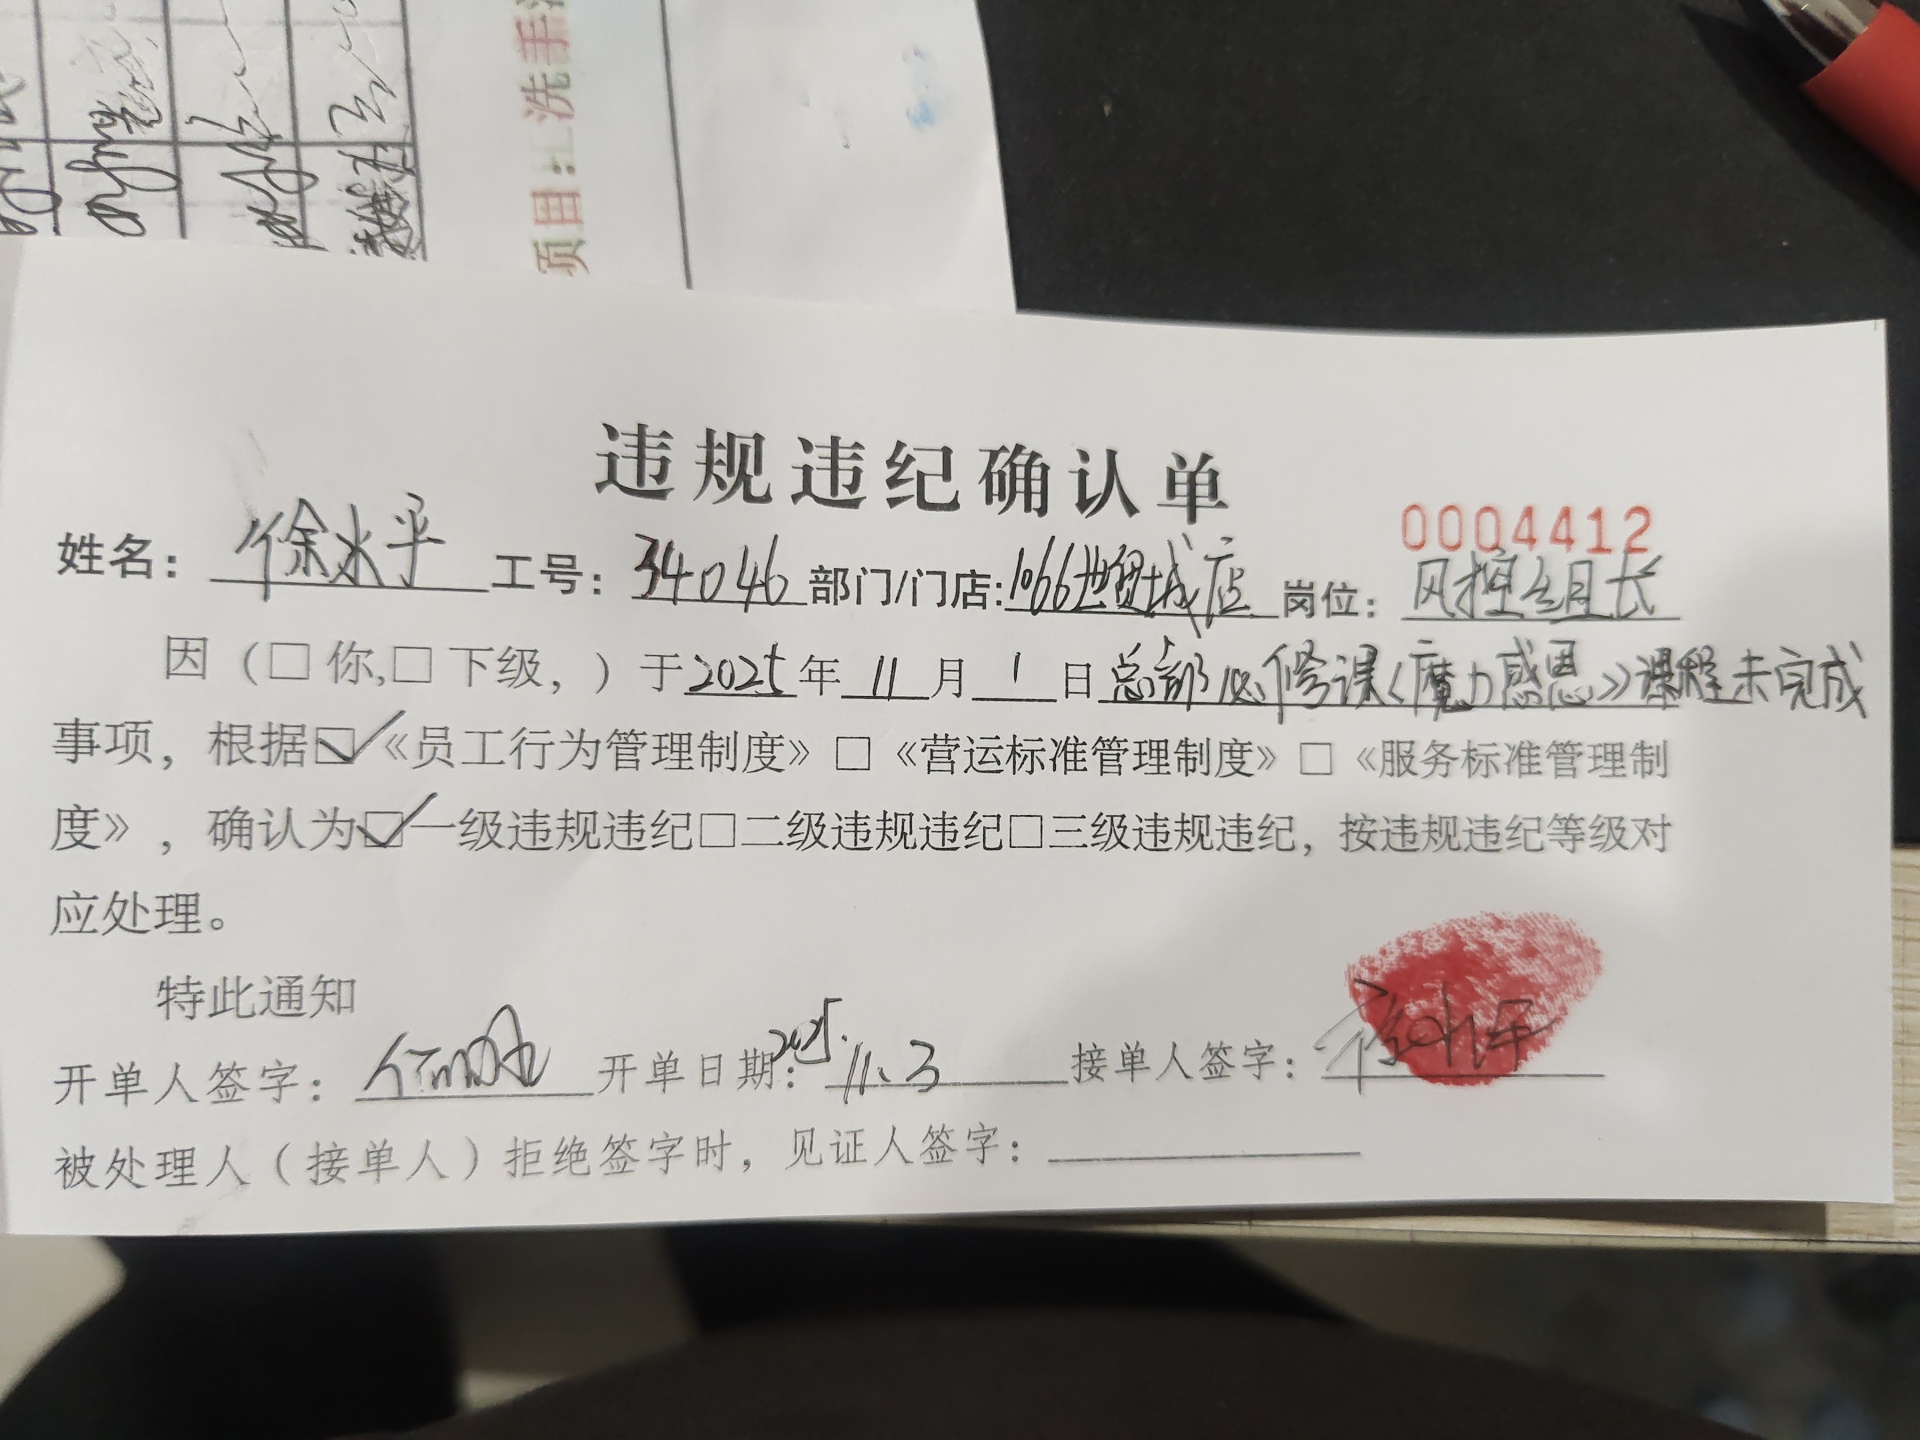 项目：洗手
违规违纪确认单
0004412
姓名：徐水平 工号：34046 部门/门店：1066世贸城店 岗位：风控组长
因（□你，□下级，）于2025年11月1日总部必修课《魔力感恩》课程未完成
事项，根据☑《员工行为管理制度》□《营运标准管理制度》□《服务标准管理制
度》，确认为☑一级违规违纪□二级违规违纪□三级违规违纪，按违规违纪等级对
应处理。
特此通知
开单人签字： 开单日期：2025.11.3 接单人签字：徐水平
被处理人（接单人）拒绝签字时，见证人签字：